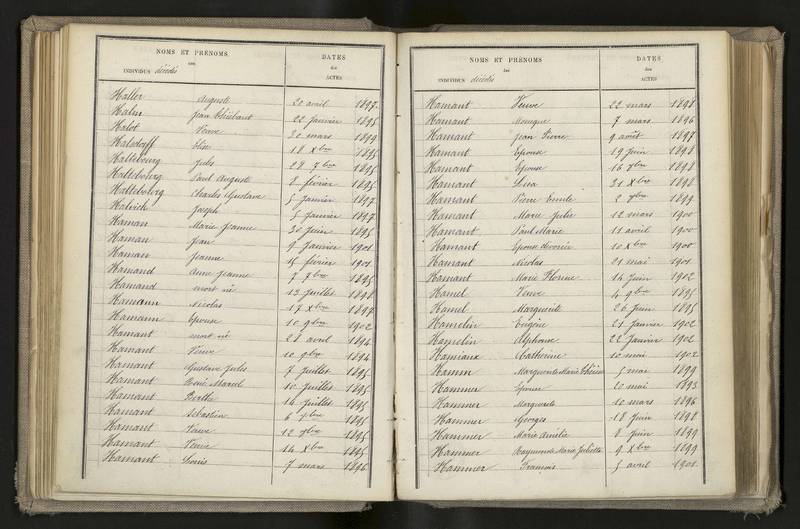 NOMS ET PRÉNOMS
des
INDIVIDUS décédés
DATES
des
ACTES
Haller Auguste 20 avril 1897
Halm Jean Thiébaut 22 Janvier 1895
Halot Veuve 30 mars 1899
Halsdorff 18 Xbre 1895
Haltebourg Jules 28 7bre 1895
Haltebourg Paul Auguste 8 février 1895
Haltebourg Charles Gustave 5 Janvier 1897
Halvich Joseph 5 Janvier 1897
Haman Marie Jeanne 30 Juin 1895
Haman Jean 9 Janvier 1901
Haman Jeanne 15 février 1901
Hamand Anne Jeanne 7 9bre 1895
Hamand mort né 12 Juillet 1898
Hamann Nicolas 17 Xbre 1899
Hamann Epouse 10 9bre 1902
Hamant mort né 28 avril 1894
Hamant Veuve 10 9bre 1894
Hamant Gustave Jules 7 Juillet 1895
Hamant René Marcel 10 Juillet 1895
Hamant Berthe 16 Juillet 1895
Hamant Sébastien 6 7bre 1895
Hamant Veuve 12 9bre 1895
Hamant Veuve 14 Xbre 1895
Hamant Louis 7 mars 1896
NOMS ET PRÉNOMS
des
INDIVIDUS décédés
DATES
des
ACTES
Hamant Veuve 22 mars 1898
Hamant Monique 7 mars 1896
Hamant Jean Pierre 9 août 1897
Hamant Epouse 19 Juin 1898
Hamant Epouse 16 9bre 1898
Hamant 31 Xbre 1898
Hamant Pierre Emile 2 9bre 1899
Hamant Marie Julie 12 mars 1900
Hamant Paul Marie 11 avril 1900
Hamant Epouse divorcée 10 Xbre 1900
Hamant Nicolas 21 mai 1901
Hamant Marie Florine 14 Juin 1902
Hamel Veuve 4 9bre 1895
Hamel Marguerite 26 Juin 1895
Hamelin Eugène 21 Janvier 1902
Hamelin Alphonse 22 Janvier 1902
Hamiaux Catherine 10 mai 1902
Hamm Marguerite Marie Thérèse 5 mai 1899
Hammer Epouse 20 mai 1893
Hammer Marguerite 10 mars 1896
Hammer Georges 18 Juin 1898
Hammer Marie Amélie 8 Juin 1899
Hammer Raymonde Marie Juliette 9 Xbre 1899
Hammer François 5 avril 1901